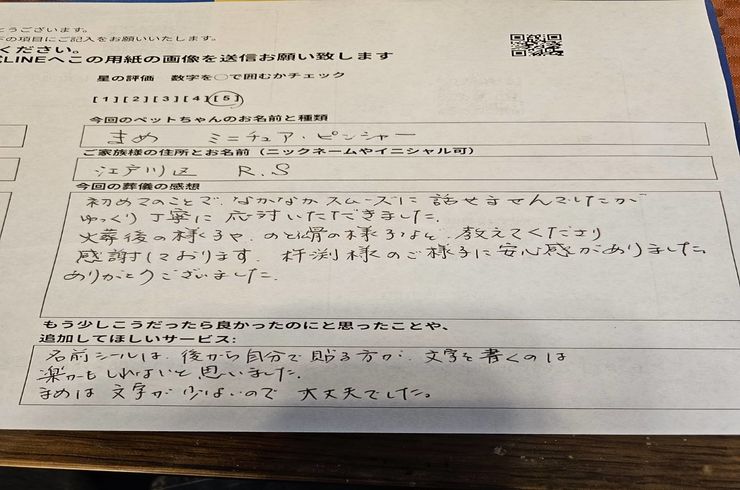 とうございます。
下の項目にご記入をお願いいたします。
ください。
LINEへこの用紙の画像を送信お願い致します
星の評価 数字を○で囲むかチェック
[1][2][3][4][5]
今回のペットちゃんのお名前と種類
まめ ミニチュア・ピンシャー
ご家族様の住所とお名前(ニックネームやイニシャル可)
江戸川区 R.S
今回の葬儀の感想
初めてのことで、なかなかスムーズに話せませんでしたが
ゆっくり丁寧に応対いただきました。
火葬後の様子や、のど骨の様子など、教えてくださり
感謝しております。杵渕様のご様子に安心感がありました。
ありがとうございました。
もう少しこうだったら良かったのにと思ったことや、
追加してほしいサービス:
名前シールは、後から自分で貼る方が、文字を書くのは
楽かもしれないと思いました。
まめは文字が少ないので大丈夫でした。